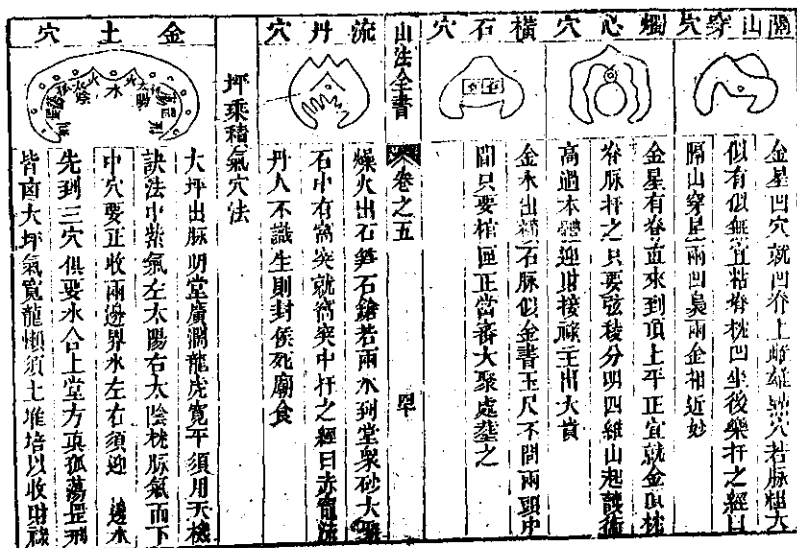 關山穿穴
金星凹穴就凹脊上雌雄點穴若脈粗大
似有似無宜粘脊枕凹坐後樂扦之經曰
隔山穿星兩凹臬兩金相近妙
燭心穴
金星有脊直來到頂上平正宜就金頂枕
脊脉扦之只要弦稜分明四維山起護衛
高過本體迎財接祿主出大貴
橫石穴
金水出石脉似金書玉尺不問兩頭中
間只要棺匣正當審大聚處塟之
山法全書
卷之五
流丹穴
燥火出石笋石鎗若兩水到堂衆砂大聚
石中有窩突就窩突中扦之經曰赤龍流
丹人不識生則封侯死廟食
坪乘積氣穴法
金土穴
大坪出脉明堂廣濶龍虎寬平須用天機
訣法中紫氣左太陽右太陰枕脉氣而下
中穴要正收兩邊界水左右須迎邊水
先到三穴俱要水合上堂方項孤蕩罡刑
皆南大坪氣寬龍懶須土堆培以收財祿
水
火
火
太陽
太陰